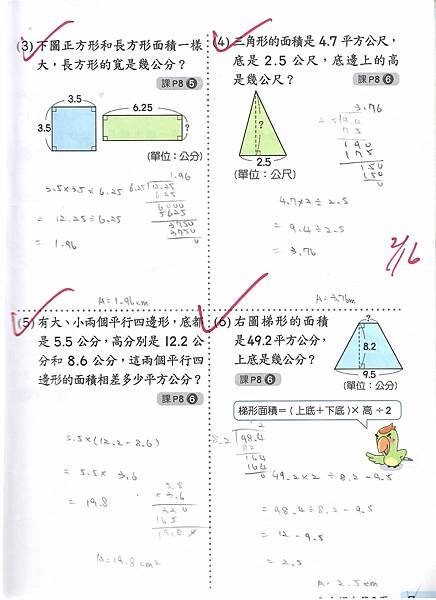 (3)下圖正方形和長方形面積一樣
大，長方形的寬是幾公分？
課P8 5
3.5
3.5
6.25
?
(單位：公分)
1.96
6.25√12.25
6.25
6000
5625
3750
3750
0
= 12.25÷6.25
= 1.96
A=1.96cm
(4)三角形的面積是 4.7 平方公尺，
底是 2.5 公尺，底邊上的高
是幾公尺？
課P8 6
?
2.5
(單位：公尺)
3.76
2.5√9.4
75
190
175
150
150
0
4.7×2÷2.5
= 9.4÷2.5
= 3.76
A=3.76m
2/16
(5)有大、小兩個平行四邊形，底都
是 5.5 公分，高分別是 12.2 公
分和 8.6 公分，這兩個平行四
邊形的面積相差多少平方公分？
課P8 6
5.5×(12.2-8.6)
= 5.5×3.6
= 19.8
5.5
×3.6
330
165
A=19.8cm²
(6)右圖梯形的面積
是49.2平方公分，
上底是幾公分？
課P8 6
?
8.2
9.5
(單位：公分)
梯形面積＝(上底＋下底)×高÷2
12
8.2√98.4
82
164
164
0
49.2×2÷8.2-9.5
= 98.4÷8.2-9.5
= 12-9.5
= 2.5
A=2.5cm